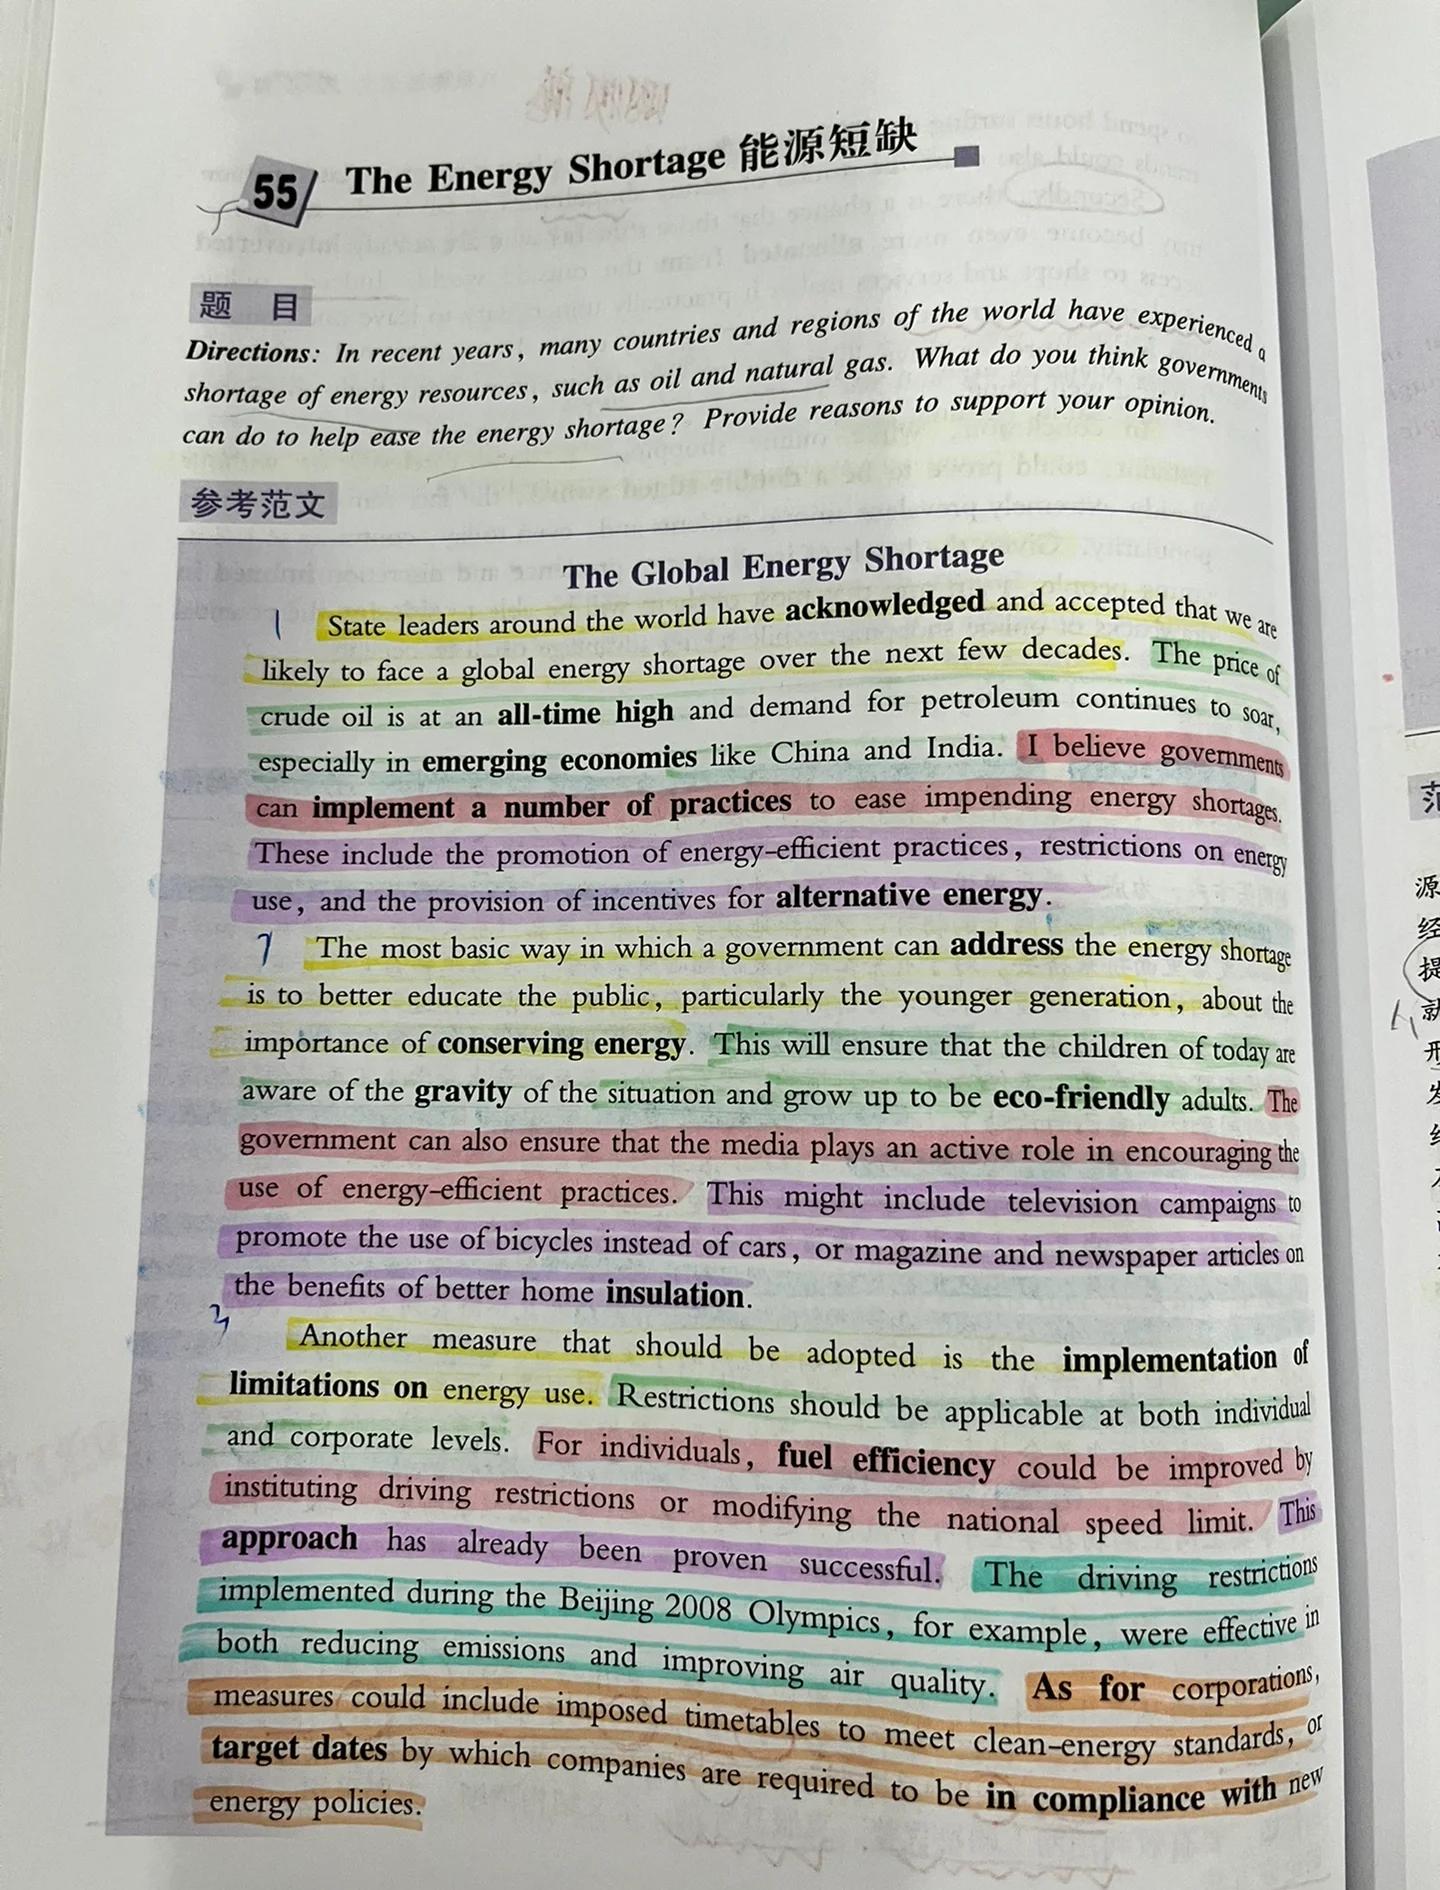 55 The Energy Shortage 能源短缺
题 目
Directions: In recent years, many countries and regions of the world have experienced a
shortage of energy resources, such as oil and natural gas. What do you think governments
can do to help ease the energy shortage? Provide reasons to support your opinion.
参考范文
The Global Energy Shortage
1 State leaders around the world have acknowledged and accepted that we are
likely to face a global energy shortage over the next few decades. The price of
crude oil is at an all-time high and demand for petroleum continues to soar,
especially in emerging economies like China and India. I believe governments
can implement a number of practices to ease impending energy shortages.
These include the promotion of energy-efficient practices, restrictions on energy
use, and the provision of incentives for alternative energy.
The most basic way in which a government can address the energy shortage
is to better educate the public, particularly the younger generation, about the
importance of conserving energy. This will ensure that the children of today are
aware of the gravity of the situation and grow up to be eco-friendly adults. The
government can also ensure that the media plays an active role in encouraging the
use of energy-efficient practices. This might include television campaigns to
promote the use of bicycles instead of cars, or magazine and newspaper articles on
the benefits of better home insulation.
3
Another measure that should be adopted is the implementation of
limitations on energy use. Restrictions should be applicable at both individual
and corporate levels. For individuals, fuel efficiency could be improved by
instituting driving restrictions or modifying the national speed limit. This
approach has already been proven successful. The driving restrictions
implemented during the Beijing 2008 Olympics, for example, were effective in
both reducing emissions and improving air quality. As for corporations,
measures could include imposed timetables to meet clean-energy standards, or
target dates by which companies are required to be in compliance with new
energy policies.
范
源
经
提
就
形